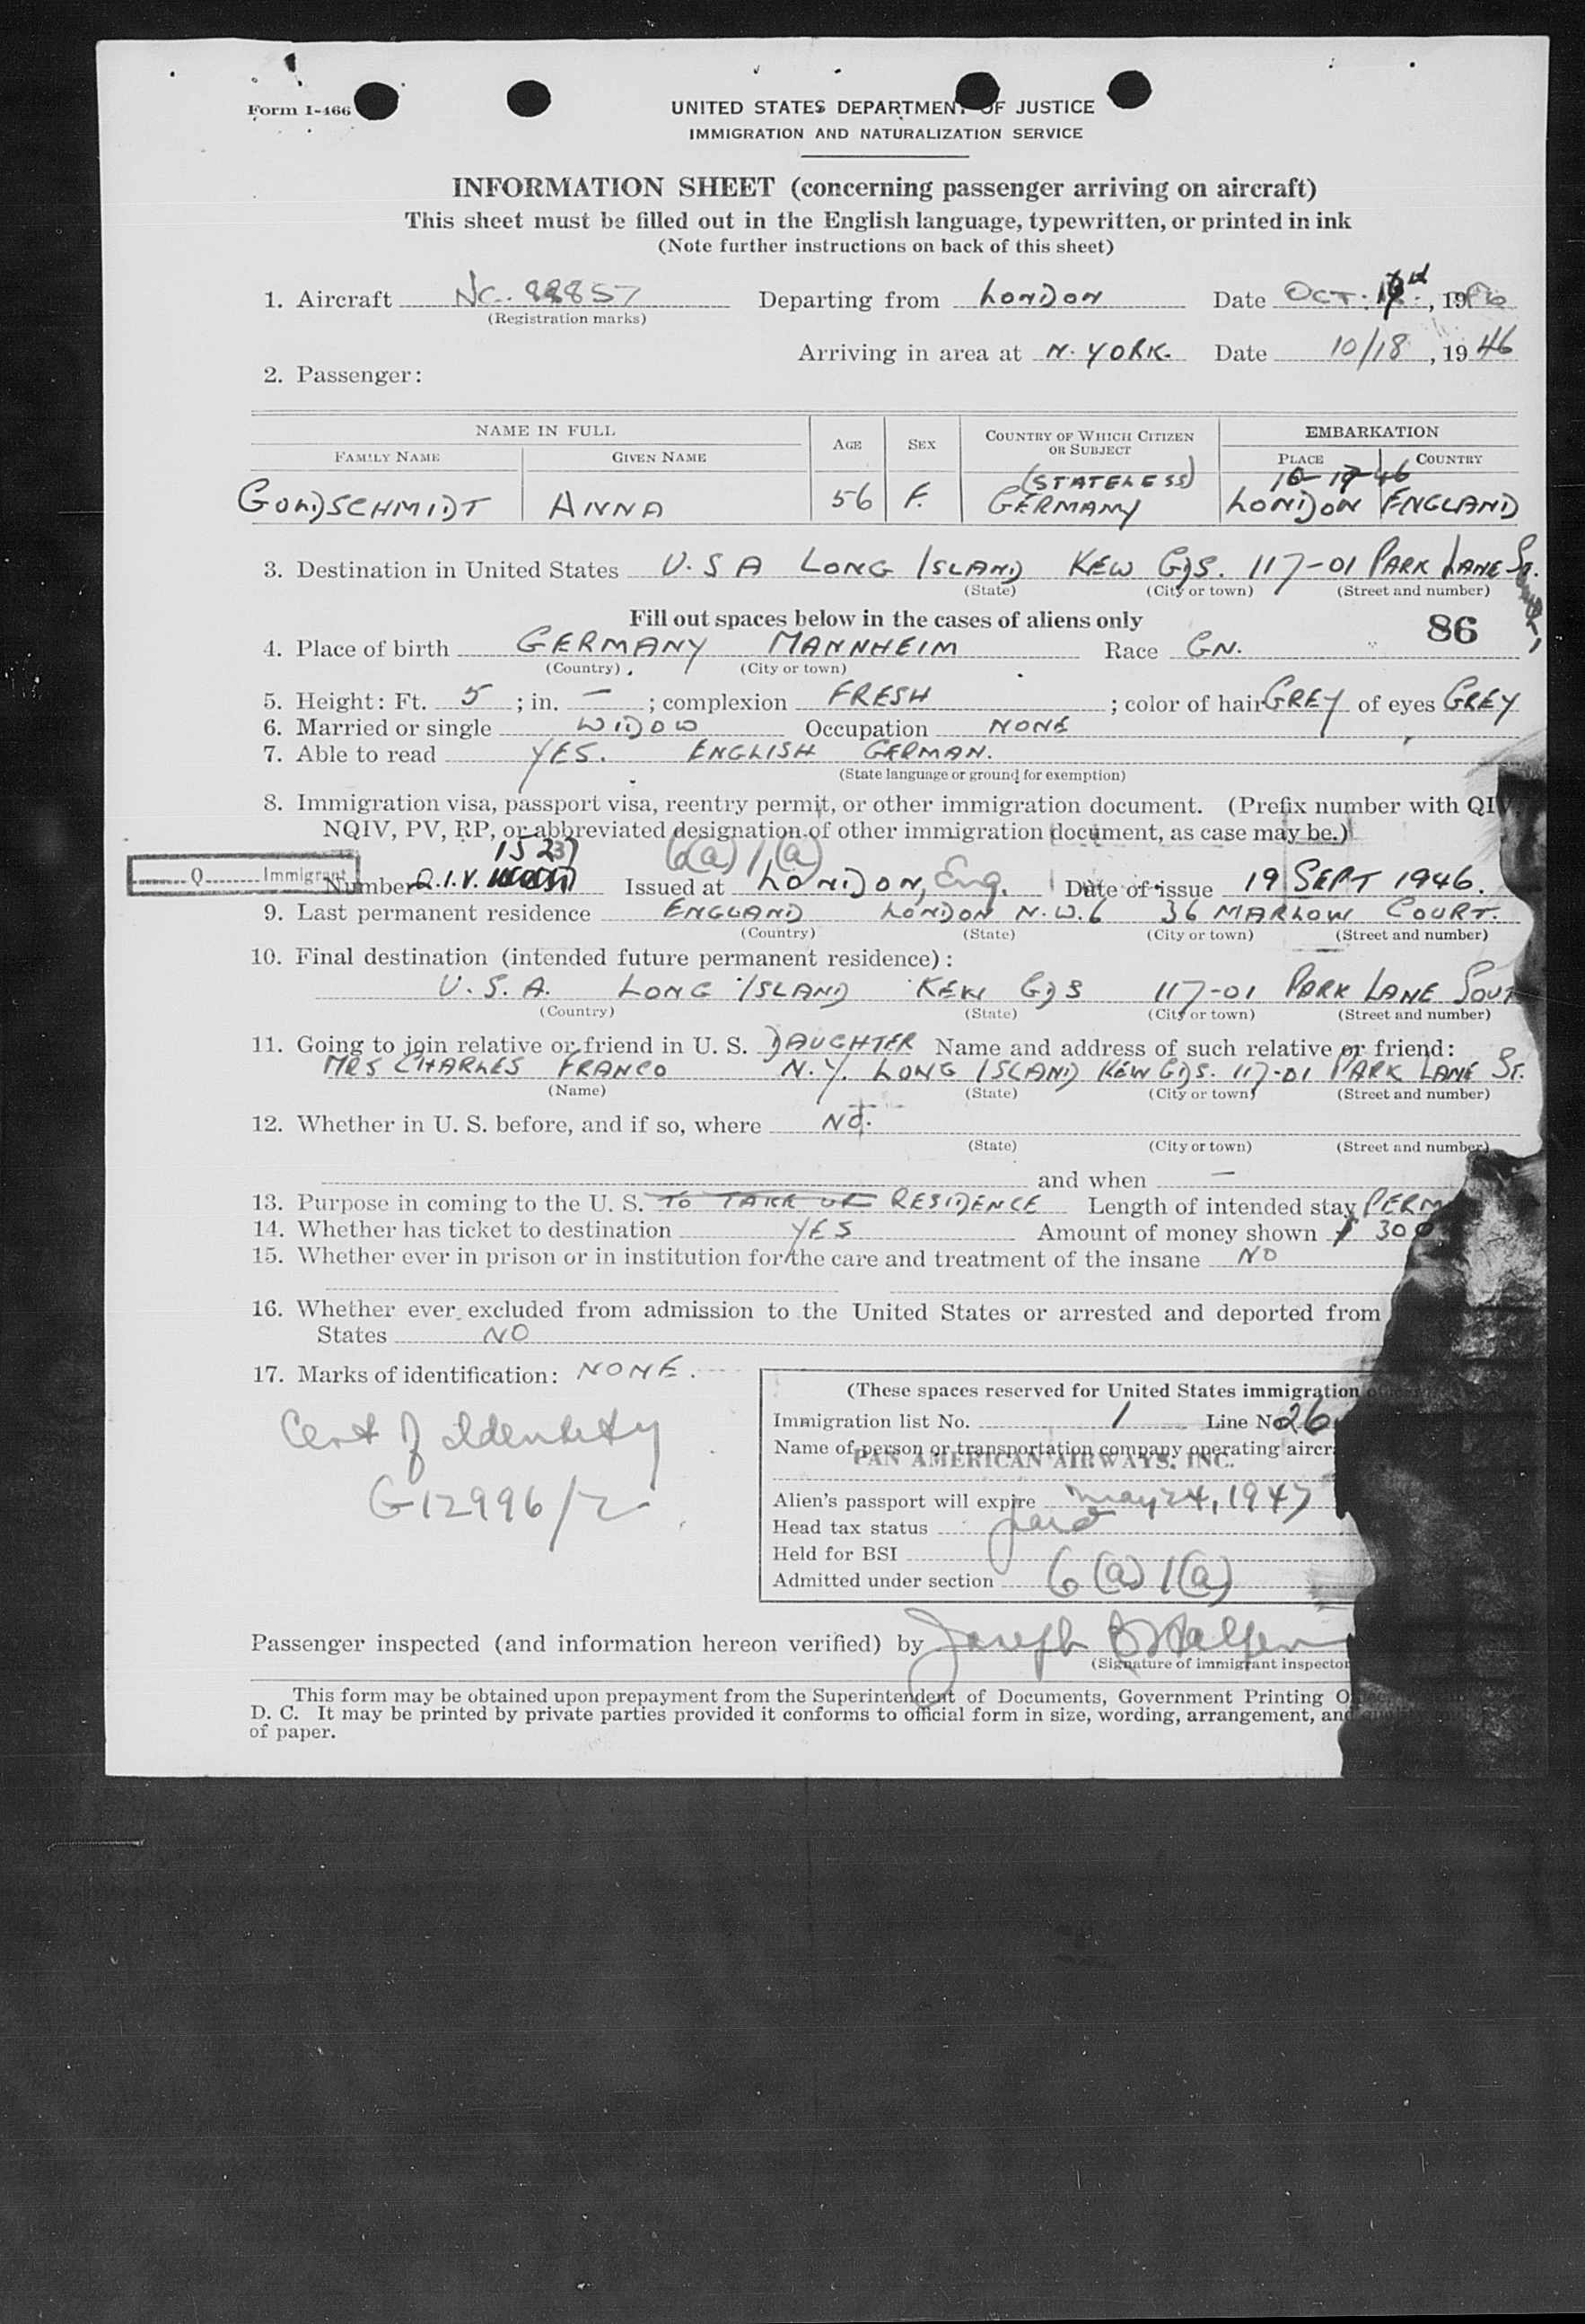 Form I-466
UNITED STATES DEPARTMENT OF JUSTICE
IMMIGRATION AND NATURALIZATION SERVICE
INFORMATION SHEET (concerning passenger arriving on aircraft)
This sheet must be filled out in the English language, typewritten, or printed in ink
(Note further instructions on back of this sheet)
1. Aircraft NC. 88857 Departing from LONDON Date OCT. , 19
(Registration marks)
Arriving in area at N. YORK. Date 10/18, 1946
2. Passenger:
NAME IN FULL AGE SEX COUNTRY OF WHICH CITIZEN OR SUBJECT EMBARKATION
FAMILY NAME GIVEN NAME PLACE COUNTRY
(STATELESS) 10-17-46
GOLDSCHMIDT ANNA 56 F. GERMANY LONDON ENGLAND
3. Destination in United States U.S A LONG ISLAND KEW GDS. 117-01 PARK LANE
(State) (City or town) (Street and number)
Fill out spaces below in the cases of aliens only 86
4. Place of birth GERMANY MANNHEIM Race GN.
(Country) (City or town)
5. Height: Ft. 5 ; in. — ; complexion FRESH ; color of hair GREY of eyes GREY
6. Married or single WIDOW Occupation NONE
7. Able to read YES. ENGLISH GERMAN.
(State language or ground for exemption)
8. Immigration visa, passport visa, reentry permit, or other immigration document. (Prefix number with QIV,
NQIV, PV, RP, or abbreviated designation of other immigration document, as case may be.)
15237 6(a) 1(a)
Q Immigrant Number Q.I.V. Issued at LONDON, Eng. Date of issue 19 SEPT 1946.
9. Last permanent residence ENGLAND LONDON N.W.6 36 MARLOW COURT.
(Country) (State) (City or town) (Street and number)
10. Final destination (intended future permanent residence):
U.S.A. LONG ISLAND KEW GDS 117-01 PARK LANE SOUT
(Country) (State) (City or town) (Street and number)
11. Going to join relative or friend in U. S. DAUGHTER Name and address of such relative or friend:
MRS CHARLES FRANCO N.Y. LONG ISLAND KEW GDS. 117-01 PARK LANE ST.
(Name) (State) (City or town) (Street and number)
12. Whether in U. S. before, and if so, where NO.
(State) (City or town) (Street and number)
and when —
13. Purpose in coming to the U. S. TO TAKE UP RESIDENCE Length of intended stay PERM
14. Whether has ticket to destination YES Amount of money shown $ 300
15. Whether ever in prison or in institution for the care and treatment of the insane NO
16. Whether ever excluded from admission to the United States or arrested and deported from
States NO
17. Marks of identification: NONE.
Cert of Identity
G12996/2
(These spaces reserved for United States immigration
Immigration list No. 1 Line No. 26
Name of person or transportation company operating aircr
PAN AMERICAN AIRWAYS, INC.
Alien's passport will expire May 24, 1947
Head tax status paid
Held for BSI
Admitted under section 6 (a) 1(a)
Passenger inspected (and information hereon verified) by Joseph
(Signature of immigrant inspector
This form may be obtained upon prepayment from the Superintendent of Documents, Government Printing
D. C. It may be printed by private parties provided it conforms to official form in size, wording, arrangement, and
of paper.